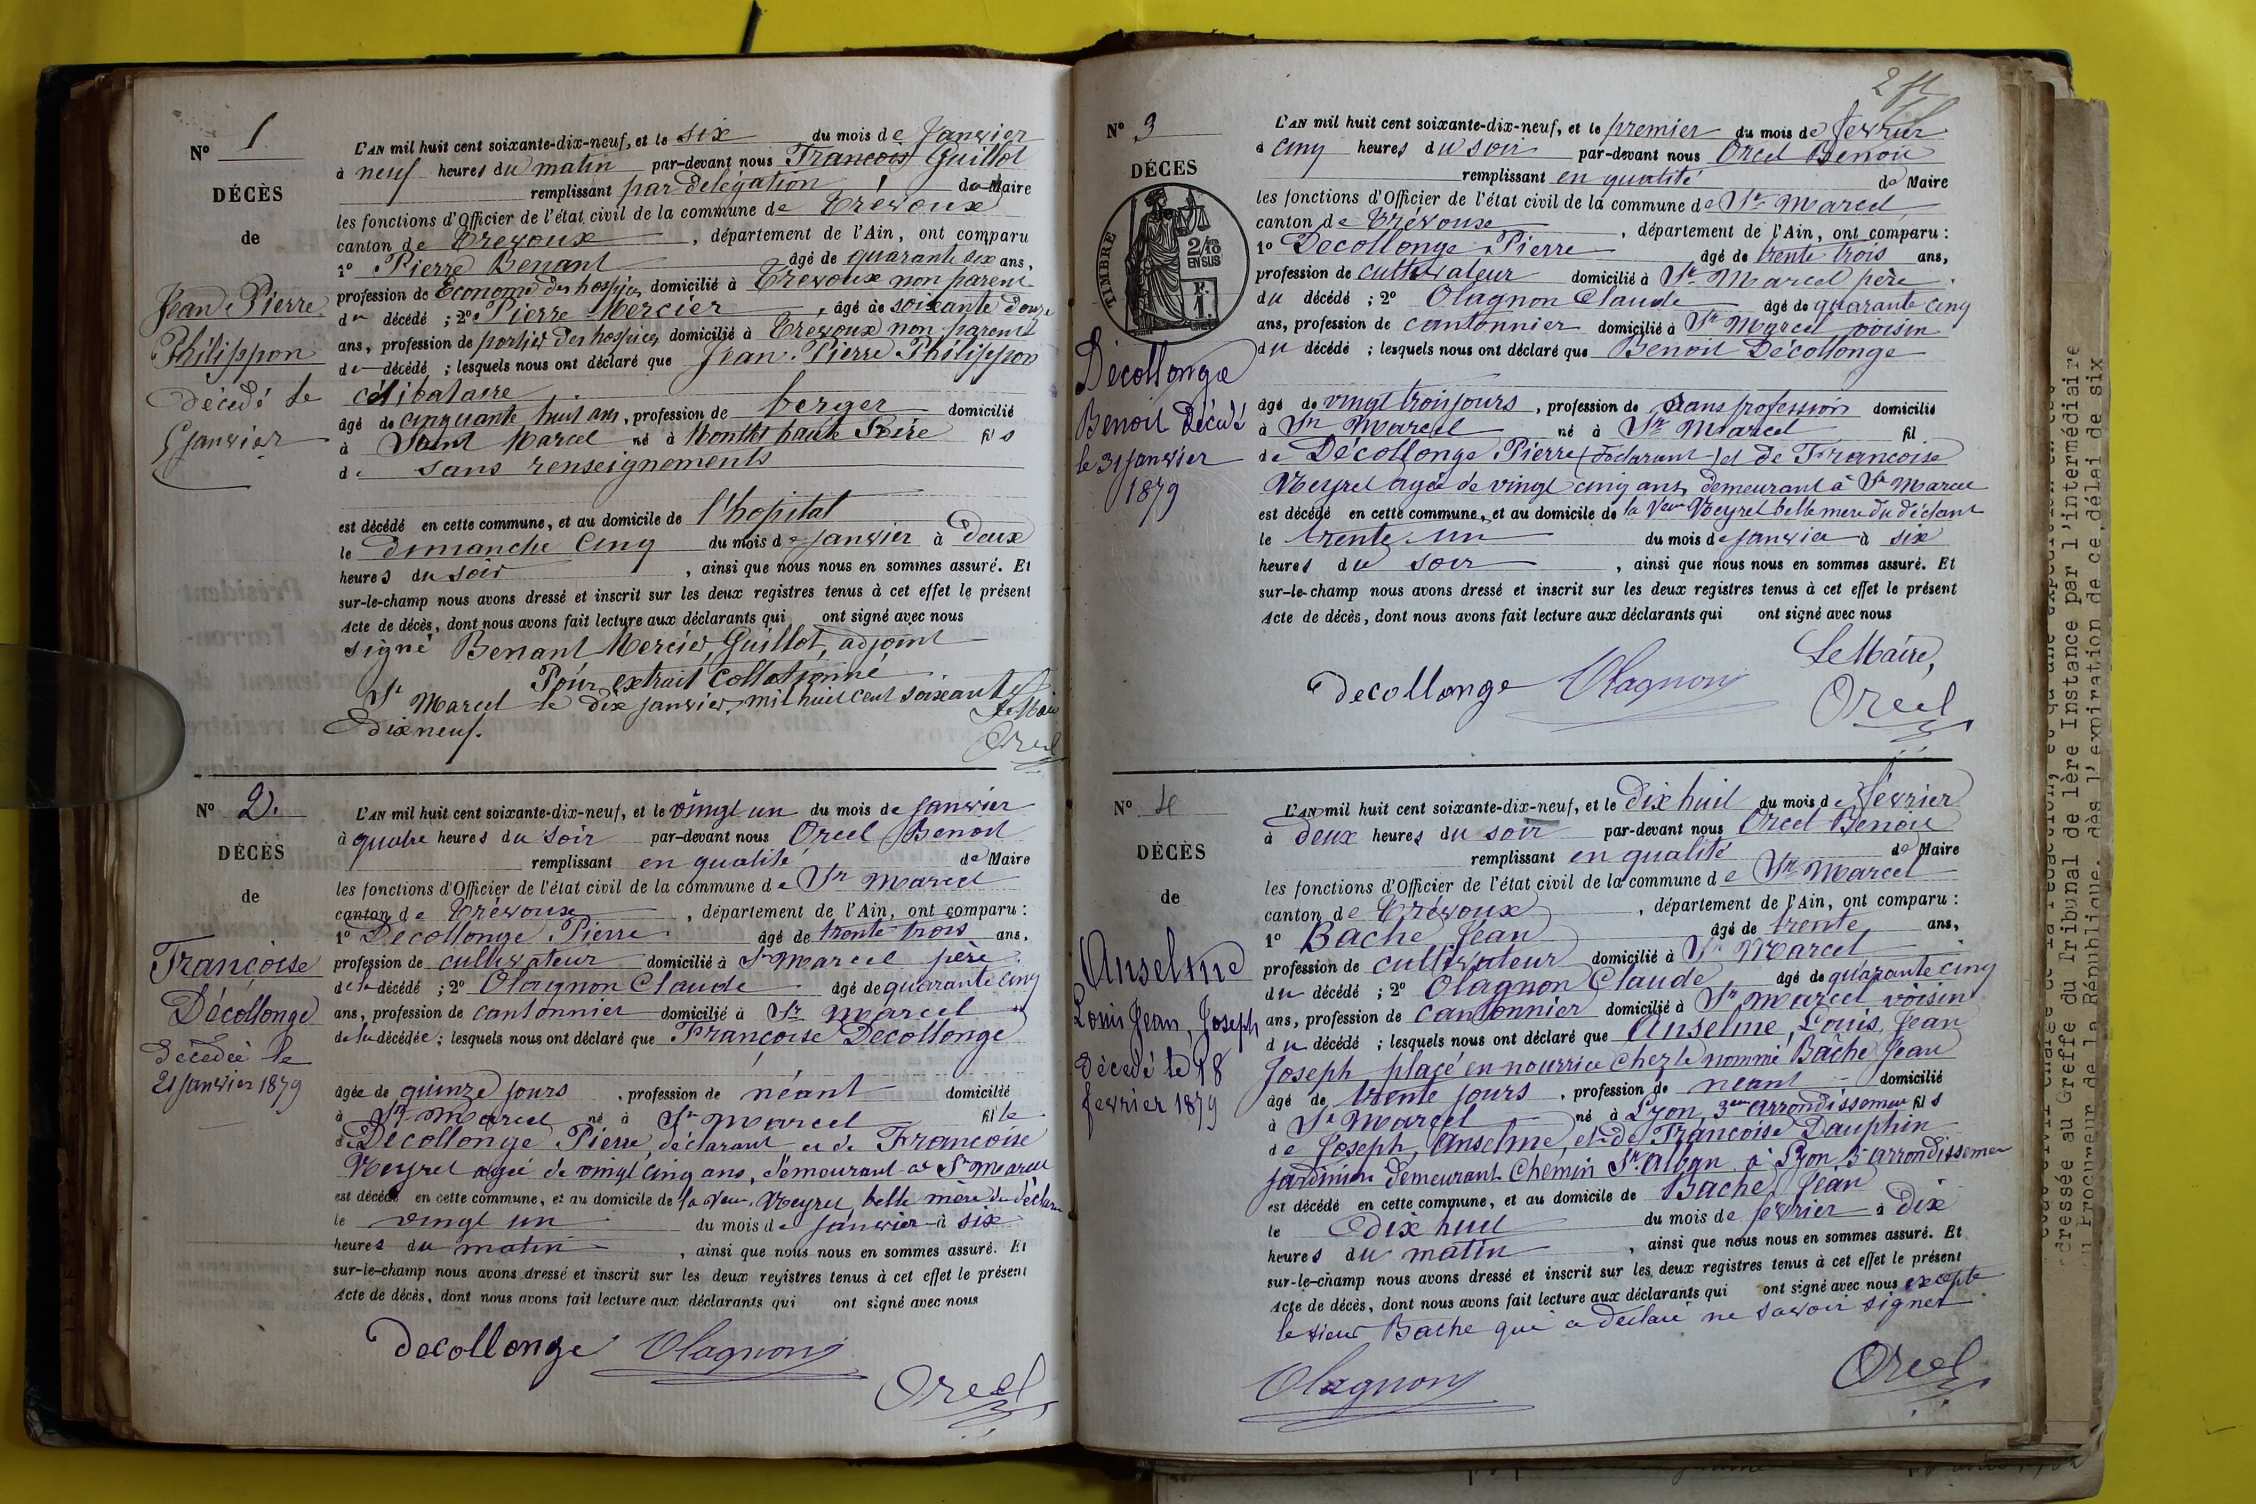 N° 1
DÉCÈS
de
Jean Pierre
Philippon
décédé le
5 janvier
L'AN mil huit cent soixante-dix-neuf, et le six du mois de Janvier
à neuf heures du matin par-devant nous François Guillot
remplissant par délégation de Maire
les fonctions d'Officier de l'état civil de la commune de Trévoux
canton de Trevoux, département de l'Ain, ont comparu
1° Pierre Benant âgé de quarante six ans,
profession de Économe des hospices domicilié à Trevoux non parent
du décédé ; 2° Pierre Mercier, âgé de soixante douze
ans, profession de portier des hospices domicilié à Trevoux non parent
du décédé ; lesquels nous ont déclaré que Jean-Pierre Philippon
célibataire
âgé de cinquante huit ans, profession de berger domicilié
à Saint Marcel né à haute Loire fils
de sans renseignements
est décédé en cette commune, et au domicile de l'hopital
le dimanche Cinq du mois de Janvier à Deux
heures du soir, ainsi que nous nous en sommes assuré. Et
sur-le-champ nous avons dressé et inscrit sur les deux registres tenus à cet effet le présent
Acte de décès, dont nous avons fait lecture aux déclarants qui ont signé avec nous
signé Benant Mercier, Guillot, adjoint
Pour extrait Collationné
St Marcel le dix janvier, mil huit cent soixante
Dix neuf.
Le Maire
Orcel
N° 2.
DÉCÈS
de
Françoise
Décollonge
décédée le
21 Janvier 1879
L'AN mil huit cent soixante-dix-neuf, et le vingt un du mois de Janvier
à quatre heures du soir par-devant nous Orcel Benoit
remplissant en qualité de Maire
les fonctions d'Officier de l'état civil de la commune de St Marcel
canton de Trévoux, département de l'Ain, ont comparu :
1° Decollonge Pierre âgé de trente trois ans,
profession de cultivateur domicilié à St Marcel père
de la décédé ; 2° Olagnon Claude âgé de quarante cinq
ans, profession de cantonnier domicilié à St Marcel
de la décédée ; lesquels nous ont déclaré que Françoise Decollonge
âgée de quinze jours, profession de néant domicilié
à St Marcel né à St Marcel fille
de Decollonge Pierre, déclarant et de Francoise
Veyret agée de vingt cinq ans, démeurant à St Marcel
est décédé en cette commune, et au domicile de la Veuve Veyret, belle mère du déclarant
le vingt un du mois de Janvier à six
heures du matin, ainsi que nous nous en sommes assuré. Et
sur-le-champ nous avons dressé et inscrit sur les deux registres tenus à cet effet le présent
Acte de décès, dont nous avons fait lecture aux déclarants qui ont signé avec nous
Decollonge Olagnon
Orcel
N° 3
DÉCES
TIMBRE
2/10
EN SUS
F.
1.
Décollonge
Benoit décédé
le 31 janvier
1879
L'AN mil huit cent soixante-dix-neuf, et le premier du mois de fevrier
à cinq heures du soir par-devant nous Orcel Benoit
remplissant en qualité de Maire
les fonctions d'Officier de l'état civil de la commune de St Marcel
canton de Trévoux, département de l'Ain, ont comparu :
1° Decollonge Pierre âgé de trente trois ans,
profession de cultivateur domicilié à St Marcel père
du décédé ; 2° Olagnon Claude âgé de quarante cinq
ans, profession de cantonnier domicilié à St Marcel voisin
du décédé ; lesquels nous ont déclaré que Benoit Décollonge
âgé de vingt trois jours, profession de sans profession domicilié
à St Marcel né à St Marcel fil
de Décollonge Pierre (Déclarant) et de Francoise
Veyret agée de vingt cinq ans, demeurant à St Marcel
est décédé en cette commune, et au domicile de la Veuve Veyret belle mere du déclant
le trente un du mois de janvier à six
heures du soir, ainsi que nous nous en sommes assuré. Et
sur-le-champ nous avons dressé et inscrit sur les deux registres tenus à cet effet le présent
Acte de décès, dont nous avons fait lecture aux déclarants qui ont signé avec nous
Le Maire,
Decollonge Olagnon Orcel
N° 4
DÉCÈS
de
Anselme
Louis Jean, Joseph
décedé le 18
fevrier 1879
L'AN mil huit cent soixante-dix-neuf, et le Dix huit du mois de février
à deux heures du soir par-devant nous Orcel Benoit
remplissant en qualité de Maire
les fonctions d'Officier de l'état civil de la commune de St Marcel
canton de Trévoux, département de l'Ain, ont comparu :
1° Bache Jean âgé de trente ans,
profession de cultivateur domicilié à St Marcel
du décédé ; 2° Olagnon Claude âgé de quarante cinq
ans, profession de cantonnier domicilié à St Marcel voisin
du décédé ; lesquels nous ont déclaré que Anselme, Louis, Jean
Joseph placé en nourrice chez le nommé Bâche Jean
âgé de trente jours, profession de néant domicilié
à St Marcel né à Lyon, 3eme arrondissement fils
de Joseph, Anselme, et de Francoise Dauphin
jardinier demeurant Chemin St Alban à Lyon 3e arrondissement
est décédé en cette commune, et au domicile de Bache Jean
le Dix huit du mois de fevrier à dix
heures du matin, ainsi que nous nous en sommes assuré. Et
sur-le-champ nous avons dressé et inscrit sur les deux registres tenus à cet effet le présent
Acte de décès, dont nous avons fait lecture aux déclarants qui ont signé avec nous excepte
le sieur Bache qui a déclaré ne savoir signer
Olagnon Orcel
dressée au Greffe du Tribunal de 1ère Instance par l'intermédiaire
u Procureur de la République, dès l'expiration de ce délai de six